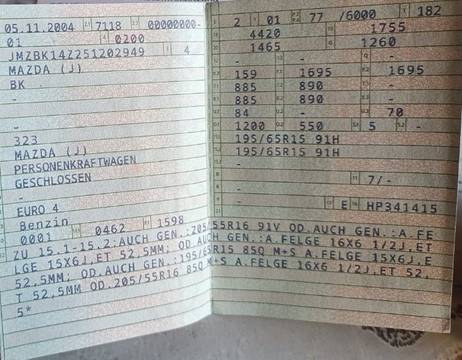 05.11.2004 7118 00000000-
01 0200
JMZBK14Z251202949 4
MAZDA (J)
BK
-
-
323
MAZDA (J)
PERSONENKRAFTWAGEN
GESCHLOSSEN
-
EURO 4
Benzin
0001 0462 1598
2 01 77 /6000 182
4420 1755
1465 1260
- - -
159 1695 1695
885 890 -
885 890 -
84 - 70
1200 550 5 -
195/65R15 91H
195/65R15 91H
-
- 7/-
- E HP341415
ZU 15.1-15.2:AUCH GEN.:205/55R16 91V OD.AUCH GEN.:A.FE
LGE 15X6J,ET 52,5MM; OD.AUCH GEN.:A.FELGE 16X6 1/2J,ET
52,5MM; OD.AUCH GEN.:195/65R15 85Q M+S A.FELGE 15X6J,E
T 52,5MM OD.205/55R16 85Q M+S A.FELGE 16X6 1/2J,ET 52,
5*